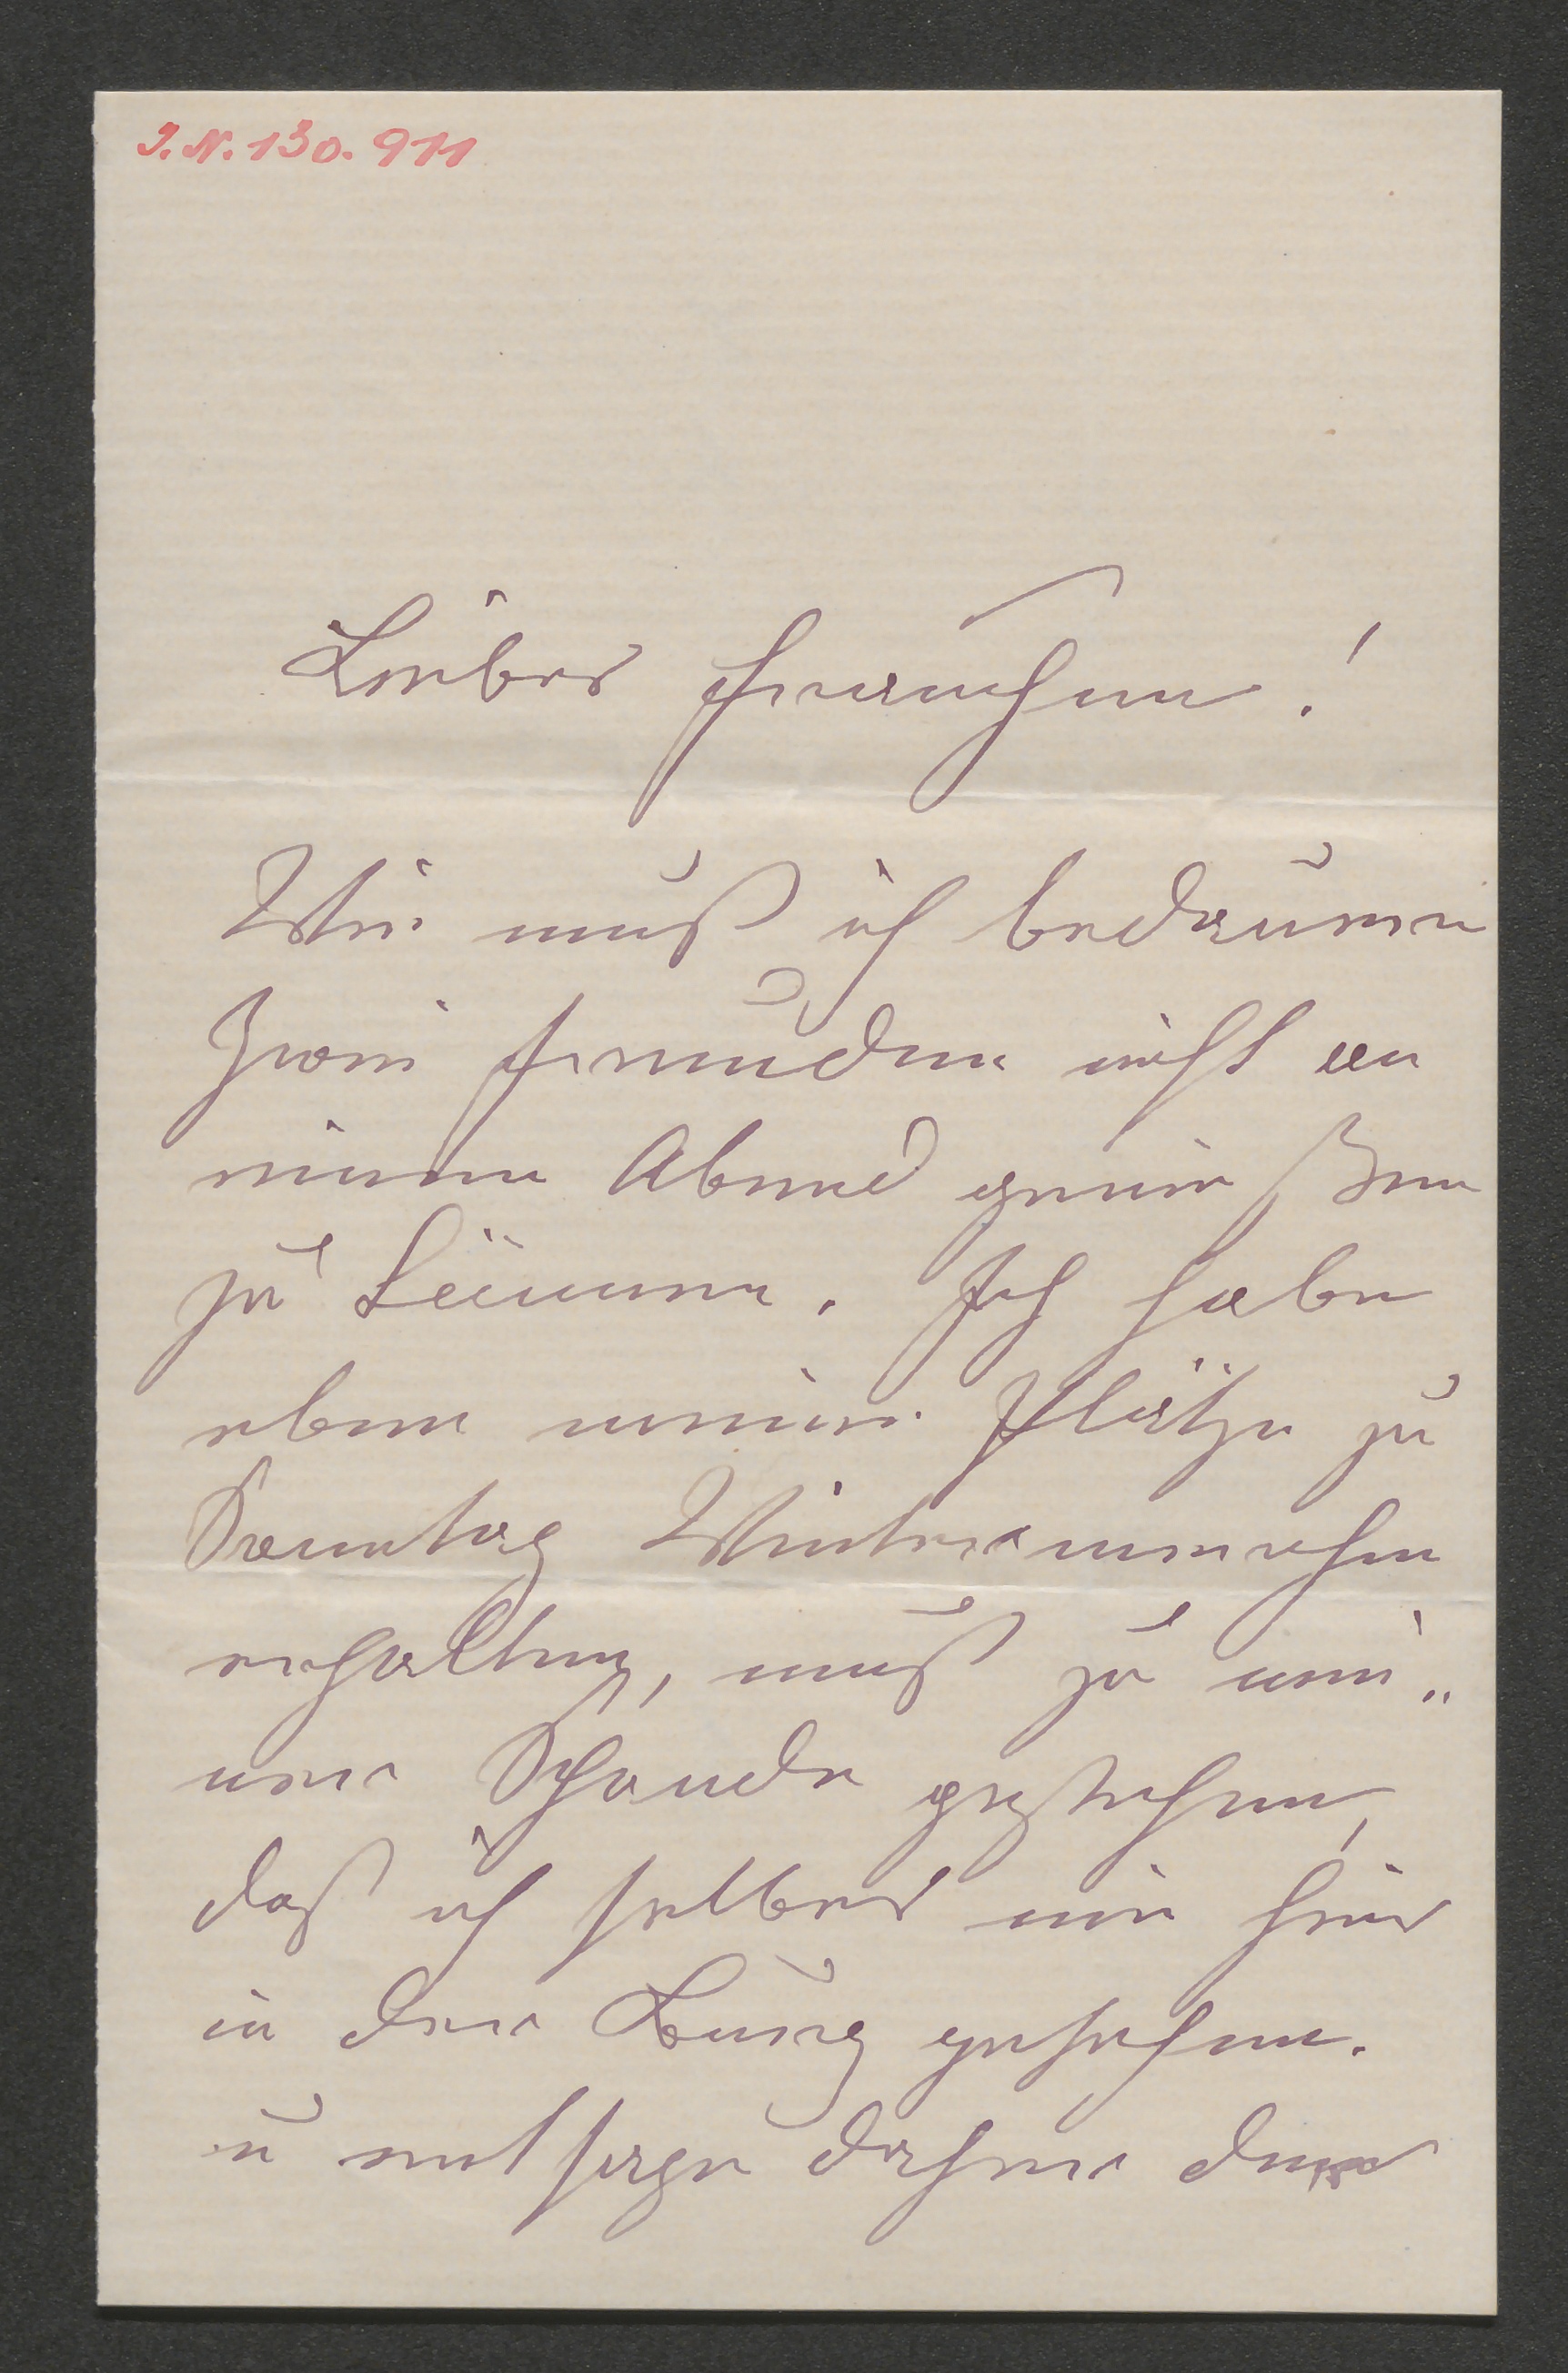 I.N. 130.911
Liebes Frauchen!
Wie muß ich bedauern
Zwei Freuden nicht an
einem Abend genießen
zu können. Ich habe
eben meine Plätze zu
Sonntag Wintermärchen
erhalten, muß zu mei„
ner Schande gestehen,
daß ich selbes nie hier
in der Burg gesehen.
u entsage daher den